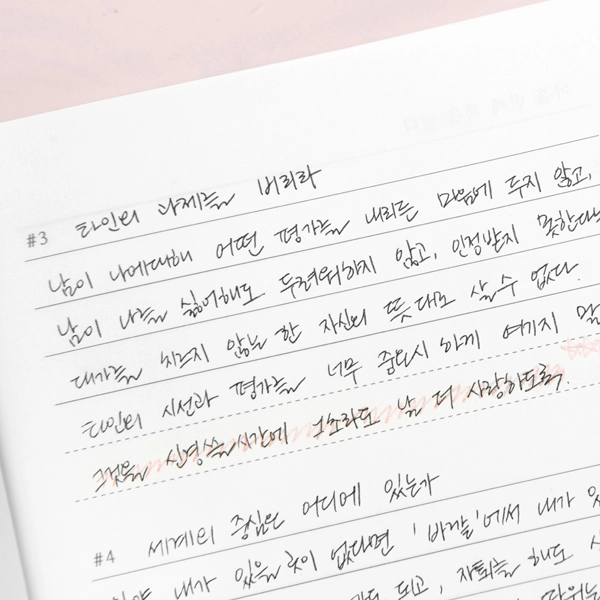 #3 타인의 과제를 버리라
남이 나에대해 어떤 평가를 내리든 마음에 두지 않고,
남이 나를 싫어해도 두려워하지 않고, 인정받지 못한다는
대가를 치르지 않는 한 자신의 뜻대로 살 수 없다.
타인의 시선과 평가를 너무 중요시 하게 여기지 말
그것을 신경쓸시간에 1초라도 날 더 사랑하도록,
#4 세계의 중심은 어디에 있는가
내가 있을 곳이 없다면 '바깥'에서 내가 있
되고, 자퇴를 해도